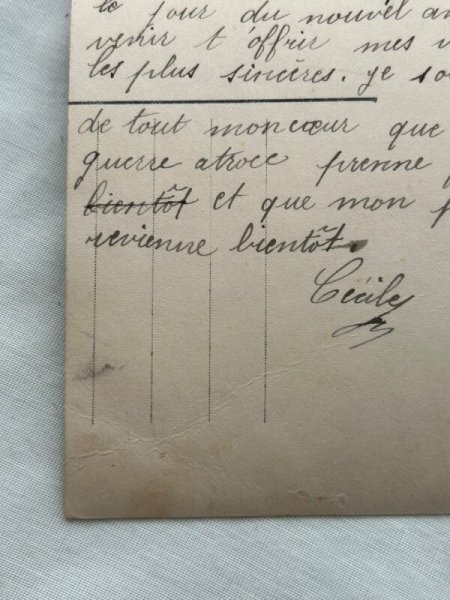 le jour du nouvel an
venir t'offrir mes
les plus sincères. je
de tout moncœur que
guerre atroce prenne
bientôt et que mon
revienne bientôt.
Cécile